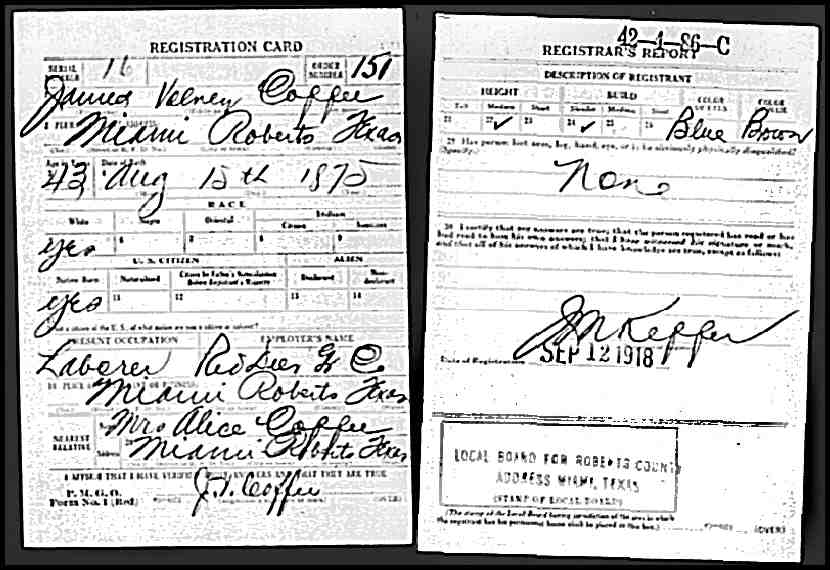 REGISTRATION CARD
SERIAL NUMBER 16 ORDER NUMBER 151
James Volney Coffee
Miami Roberts Texas
Age in Date of Birth
43 Aug 15th 1875
RACE
White Negro Oriental Indian
Citizen
yes 6 8 9
U. S. CITIZEN ALIEN
Native Born Naturalized Citizen by Father's Naturalization Before Registrant's Majority Declared Non-declarant
yes 11 12 13 14
PRESENT OCCUPATION EMPLOYER'S NAME
Laborer Red Deer Co
Miami Roberts Texas
NEAREST RELATIVE Mrs Alice Coffee
Address Miami Roberts Texas
I AFFIRM THAT I HAVE VERIFIED ANSWERS AND THAT THEY ARE TRUE
P. M. G. O.
Form No. 1 (Red) J. V. Coffee (OVER)
42-4-86-C
REGISTRAR'S REPORT
DESCRIPTION OF REGISTRANT
HEIGHT BUILD COLOR OF EYES COLOR OF HAIR
Tall Medium Short Slender Medium Stout
21 22 ✓ 23 24 ✓ 25 26 Blue Brown
29 Has person lost arm, leg, hand, eye, or is he obviously physically disqualified?
(Specify.)
None
30 I certify that my answers are true; that the person registered has read or has
had read to him his own answers; that I have witnessed his signature or mark,
and that all of his answers of which I have knowledge are true, except as follows:
J M Keffer
Date of Registration SEP 12 1918
LOCAL BOARD FOR ROBERTS COUNTY
ADDRESS MIAMI, TEXAS
(STAMP OF LOCAL BOARD)
(The stamp of the Local Board having jurisdiction of the area in which
the registrant has his permanent home shall be placed in this box.)
(OVER)